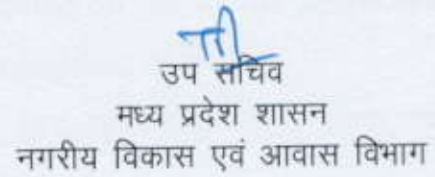 उप सचिव
मध्य प्रदेश शासन
नगरीय विकास एवं आवास विभाग